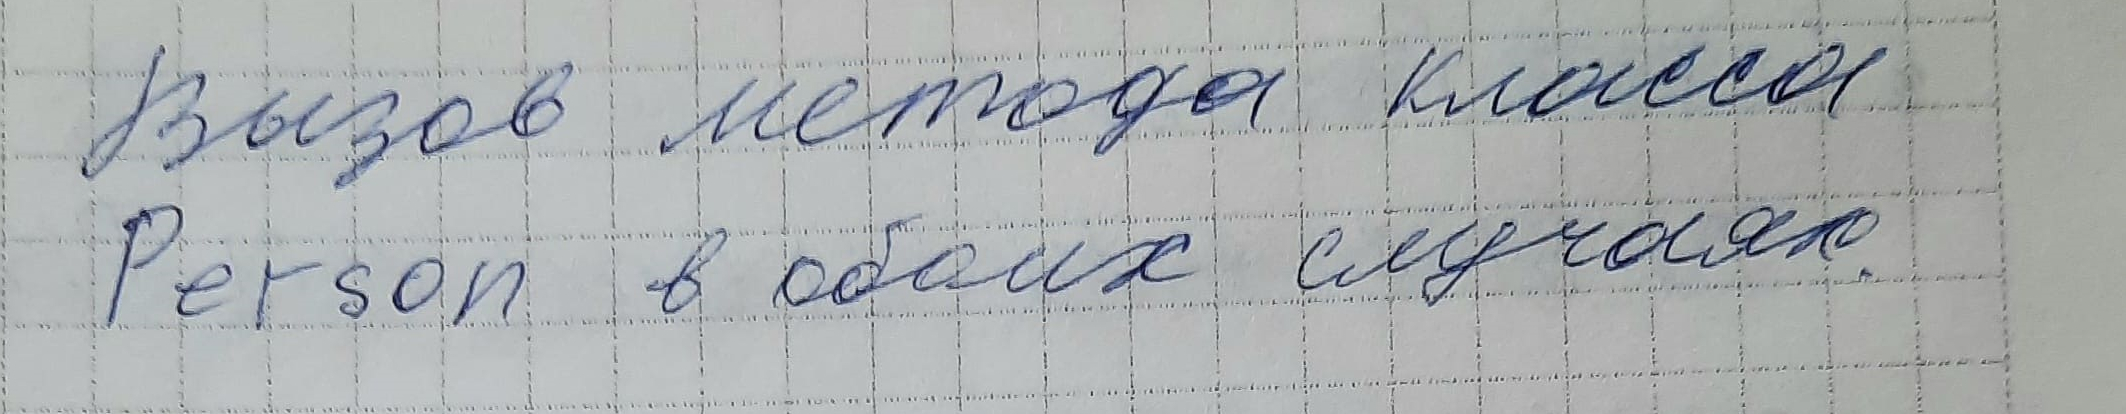 Вызов метода класса
Person в обоих случаях.